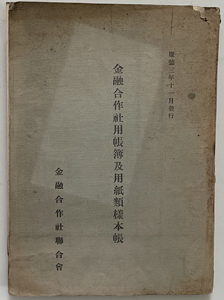 康德三年十一月發行
金融合作社用帳簿及用紙類樣本帳
金融合作社聯合會